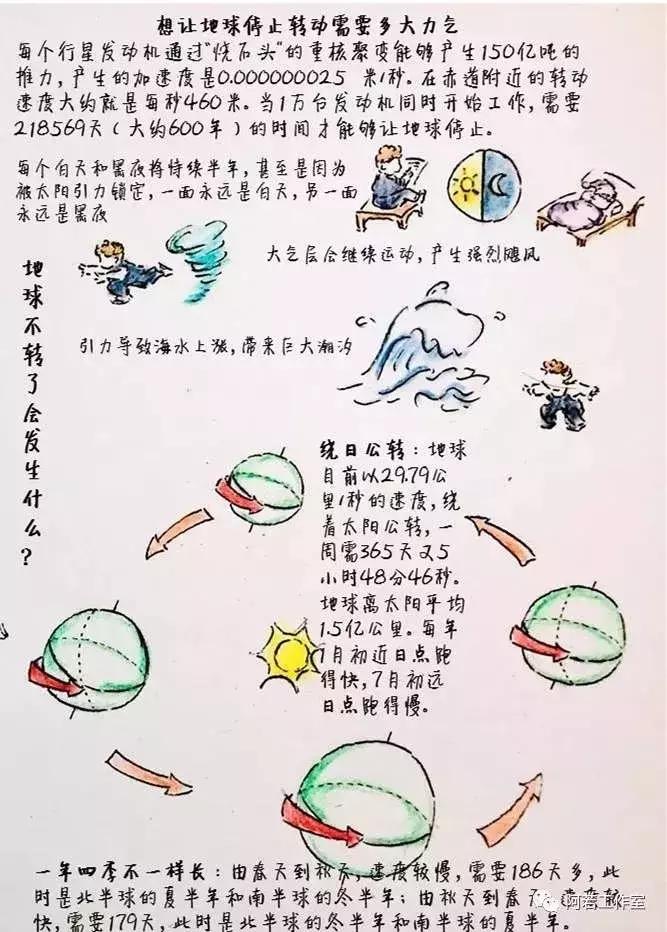 想让地球停止转动需要多大力气
每个行星发动机通过“烧石头”的重核聚变能够产生150亿吨的
推力，产生的加速度是0.000000025 米/秒。在赤道附近的转动
速度大约就是每秒460米。当1万台发动机同时开始工作，需要
218569天（大约600年）的时间才能够让地球停止。
每个白天和黑夜将持续半年，甚至是因为
被太阳引力锁定，一面永远是白天，另一面
永远是黑夜
大气层会继续运动，产生强烈飓风
地球不转了会发生什么？
引力导致海水上涨，带来巨大潮汐
绕日公转：地球
目前以29.79公
里/秒的速度，绕
着太阳公转，一
周需365天又5
小时48分46秒。
地球离太阳平均
1.5亿公里。每年
1月初近日点跑
得快，7月初远
日点跑得慢。
一年四季不一样长：由春天到秋天，速度较慢，需要186天多，此
时是北半球的夏半年和南半球的冬半年；由秋天到春天，速度较
快，需要179天，此时是北半球的冬半年和南半球的夏半年。
阿若工作室